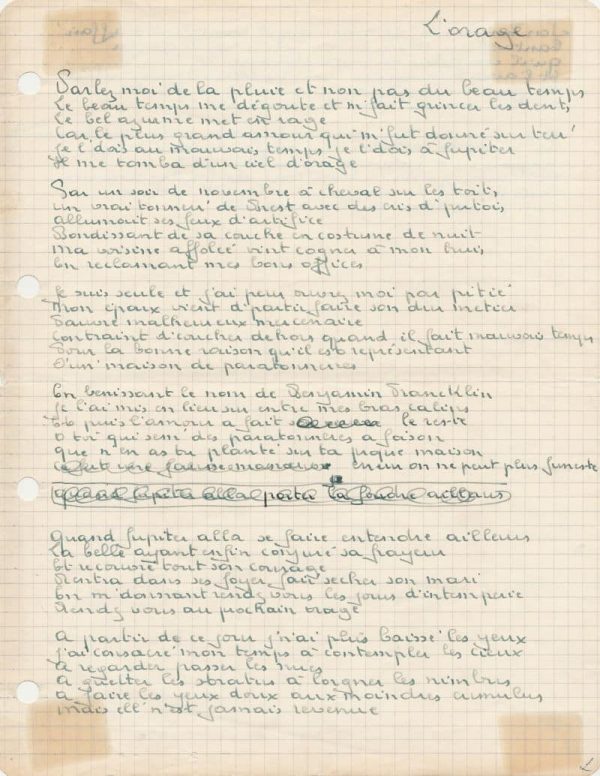 L'orage
Parlez moi de la pluie et non pas du beau temps
Le beau temps me dégoute et m'fait grincer les dents
Le bel azur me met en rage
Car le plus grand amour qui m'fut donné sur terr'
Je l'dois au mauvais temps je l'dois à Jupiter
Il me tomba d'un ciel d'orage
Par un soir de novembre à cheval sur les toits
un vrai tonnerr' de Brest avec des cris d'putois
allumait ses feux d'artifice
Bondissant de sa couche en costume de nuit
Ma voisine affolée vint cogner à mon huis
En reclamant mes bons offices
Je suis seule et j'ai peur ouvrez moi par pitié
Mon époux vient d'partir faire son dur metier
Pauvre malheureux mercenaire
Contraint d'coucher dehors quand il fait mauvais temps
Pour la bonne raison qu'il est représentant
D'un' maison de paratonneres
En benissant le nom de Benjamin Francklin
Je l'ai mis en lieu sur entre mes bras calins
Et puis l'amour a fait le reste
O toi qui sem' des paratonneres a foison
que n'en as tu planté sur ta propre maison
erreur on ne peut plus funeste
quand Jupiter alla porter la foudre ailleurs
Quand Jupiter alla se faire entendre ailleurs
La belle ayant enfin conjuré sa frayeur
Et recouvré tout son courage
Rentra dans ses foyers fair' secher son mari
En m'donnant rendez vous les jours d'intemperie
Rendez vous au prochain orage
A partir de ce jour j'n'ai plus baissé les yeux
J'ai consacré mon temps à contempler les cieux
A regarder passer les nues
A guetter les stratus à lorgner les nimbus
A faire les yeux doux aux moindres cumulus
Mais ell' n'est jamais revenue